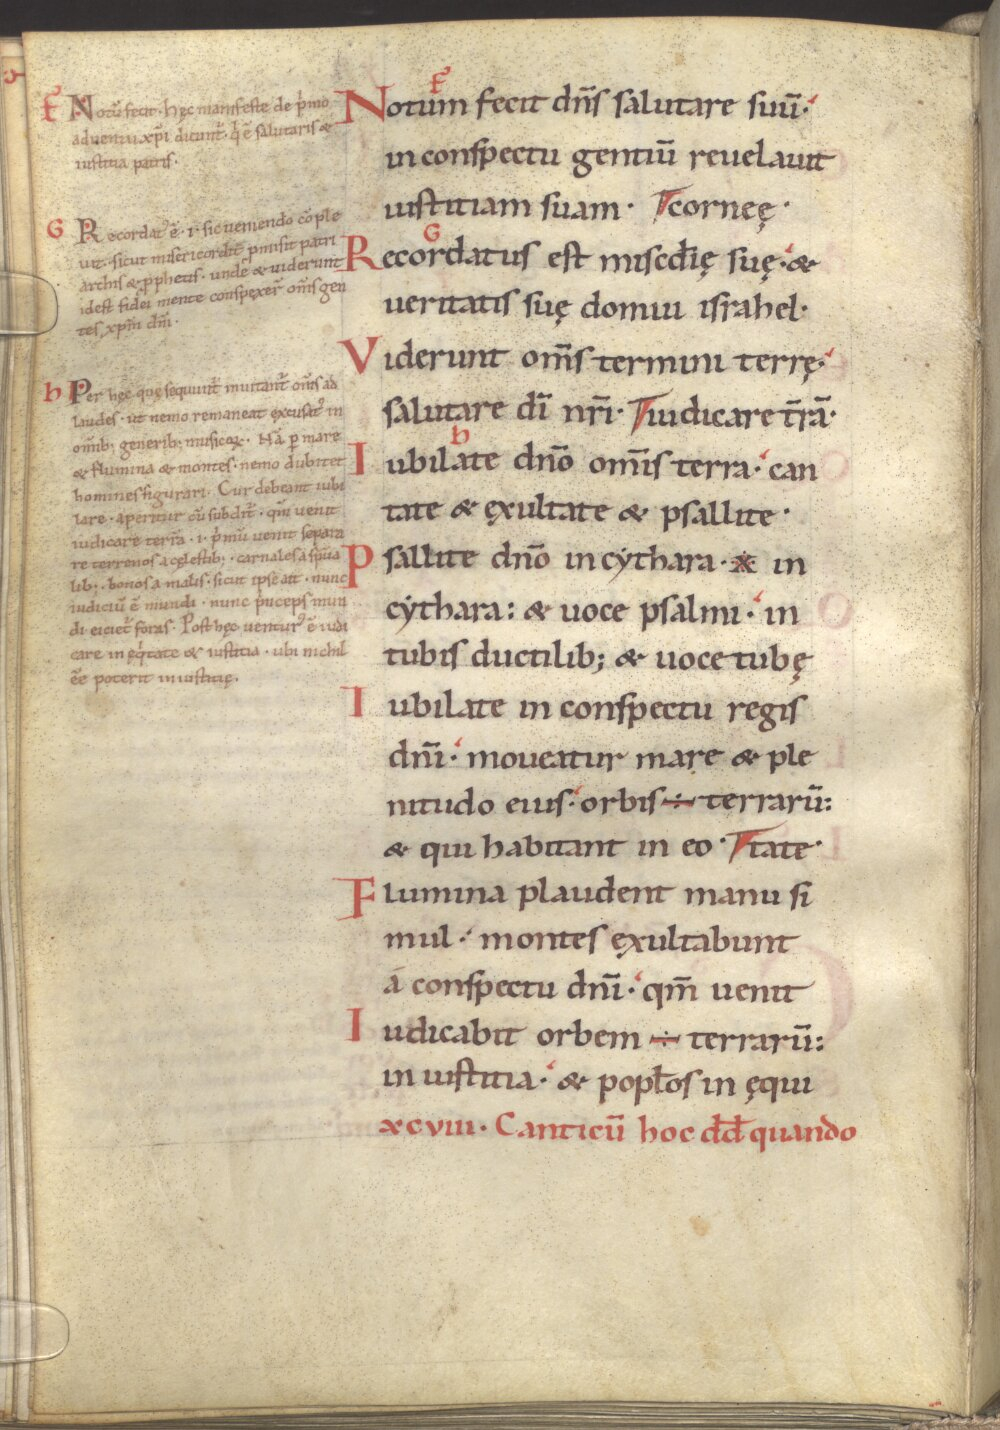 F Notū fecit. hęc manifeste de p̄mo
aduentu xp̄i dicunt̄. q̄ ē salutaris &
iustitia patris.
G Recordat᷒ ē. i. sic ueniendo cōple
uit. sicut misericordit̄ p̄misit patri
archis & p̄phetis. unde & uiderunt
idest fidei mente conspexer̄ om̄s gen
tes xp̄m dn̄m.
h Per hęc quę sequunt̄ inuitant̄ om̄s ad
laudes. ut nemo remaneat excusat᷒ in
om̄ib; generib; musicoꝝ. Nā p mare
& flumina & montes. nemo dubitet
homines figurari. Cur debeant iubi
lare. aperitur cū subdit̄. qm̄ uenit
iudicare terrā. i. p̄mū uenit separa
re terrenos a cęlestib;. carnales a sp̄ua
lib;. bonos a malis. sicut ipse ait. nunc
iudiciū ē mundi. nunc p̄nceps mun
di eiciet̄ foras. Post hęc uentur᷒ ē iudi
care in ęq̄tate & iustitia. ubi nichil
ēē poterit iniustitię.
F
Notum fecit dn̄s salutare suū.
in conspectu gentiū reuelauit
iustitiam suam. corneę.
G
Recordatus est miscd̄ię suę. &
ueritatis suę domui israhel.
Viderunt om̄s termini terrę.
salutare dī nr̄i. iudicare t̄rā.
h
Iubilate dn̄o om̄is terra. can
tate & ęxultate & psallite.
Psallite dn̄o in cythara. ※ in
cythara: & uoce psalmi. in
tubis ductilib; & uoce tubę
Iubilate in conspectu regis
dn̄i. moueatur mare & ple
nitudo eius. orbis ÷ terrarū:
& qui habitant in eo. tate.
Flumina plaudent manu si
mul. montes ęxultabunt
á conspectu dn̄i. qm̄ uenit
Iudicabit orbem ÷ terrarū:
in iustitia. & popl̄os in ęqui
xcviii. Canticū hoc dd̄ quando